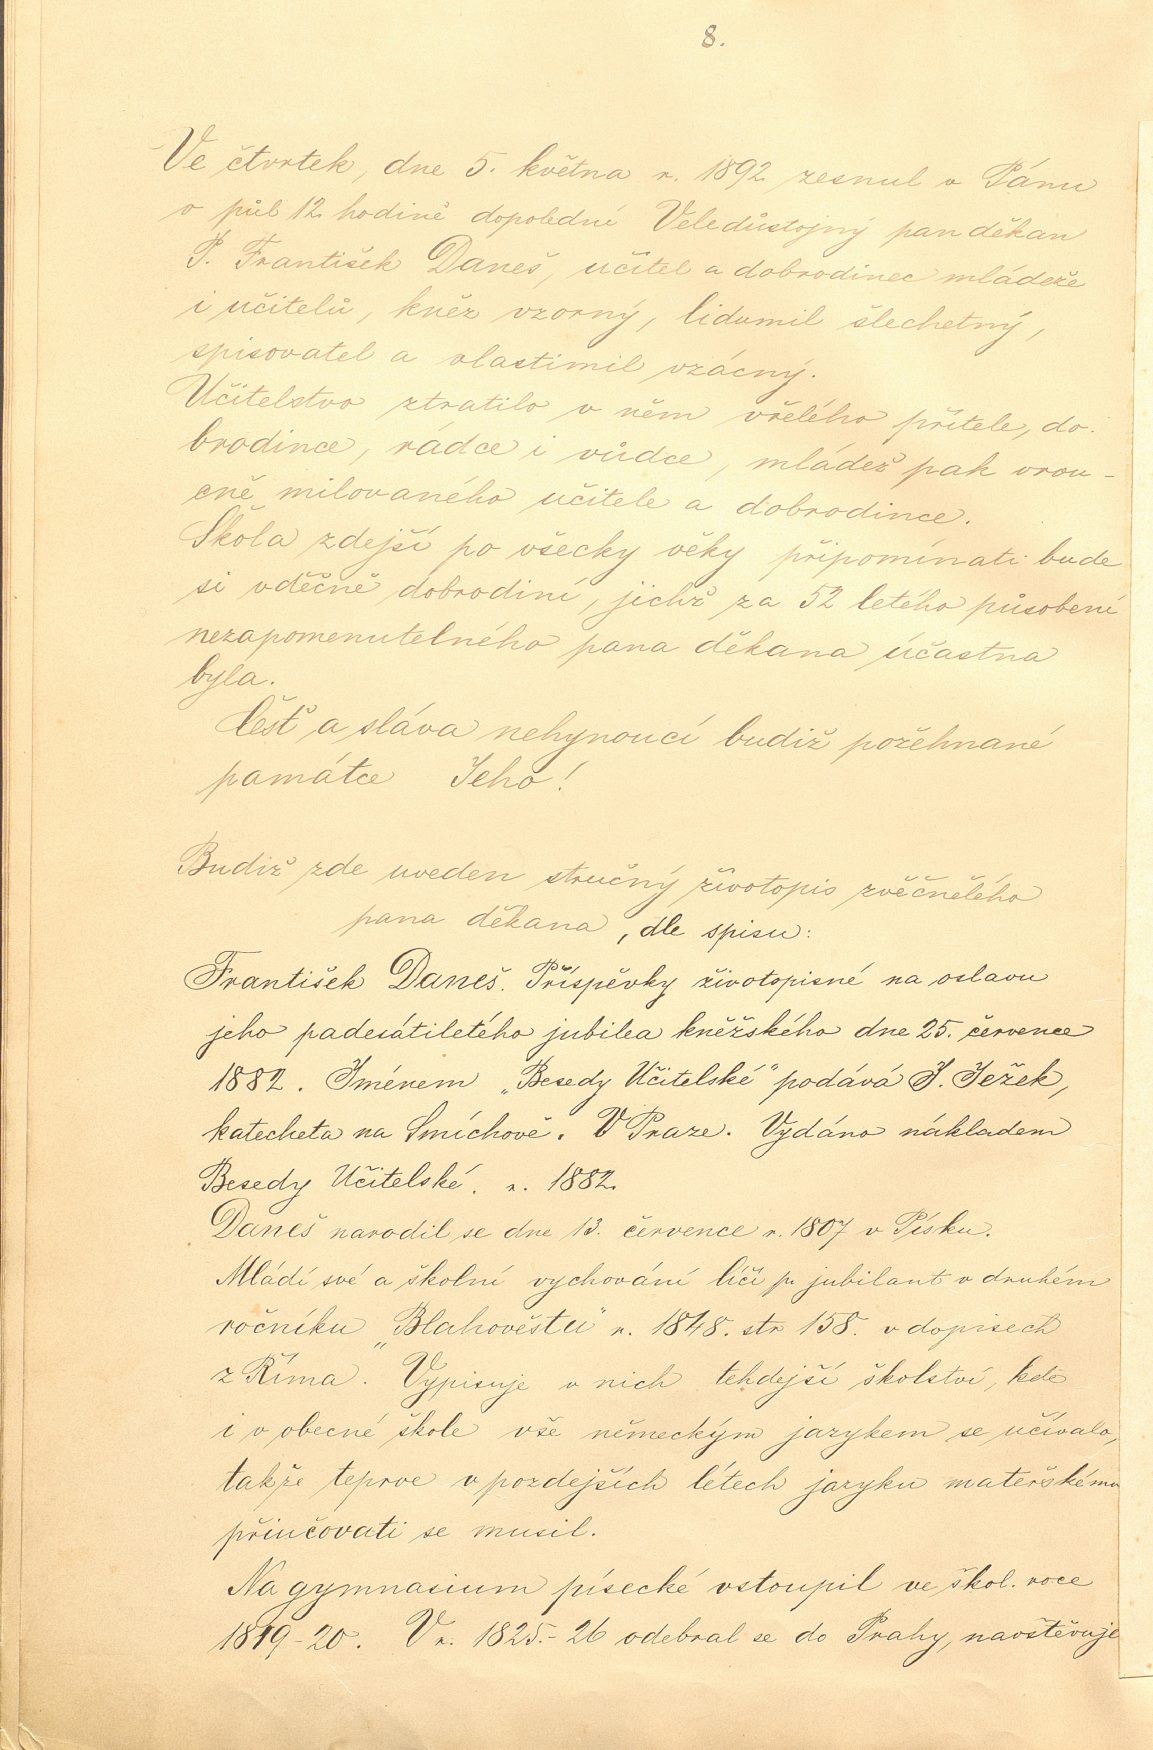 8.
Ve čtvrtek, dne 5. května r. 1892 zesnul v Pánu
o půl 12. hodině dopolední Veledůstojný pan děkan
P. František Daneš, učitel a dobrodinec mládeže
i učitelů, kněz vzorný, lidumil šlechetný,
spisovatel a vlastimil vzácný.
Učitelstvo ztratilo v něm vřelého přítele, do-
brodince, rádce i vůdce, mládež pak vrou-
cně milovaného učitele a dobrodince.
Škola zdejší po všecky věky připomínati bude
si vděčně dobrodiní, jichž za 52 letého působení
nezapomenutelného pana děkana účastna
byla.
Čest a sláva nehynoucí budiž požehnané
památce Jeho!
Budiž zde uveden stručný životopis zvěčnělého
pana děkana, dle spisu:
František Daneš. Příspěvky životopisné na oslavu
jeho padesátiletého jubilea kněžského dne 25. července
1882. Jménem „Besedy Učitelské" podává J. Ježek,
katecheta na Smíchově. V Praze. Vydáno nákladem
Besedy Učitelské. r. 1882.
Daneš narodil se dne 13. července r. 1807 v Písku.
Mládí své a školní vychování líčí p. jubilant v druhém
ročníku „Blahověstu" r. 1848. str 158. v dopisech
z Říma. Vypisuje v nich tehdejší školství, kde
i v obecné škole vše německým jazykem se učívalo,
takže teprve v pozdejších létech jazyku mateřskému
přiučovati se musil.
Na gymnasium písecké vstoupil ve škol. roce
1819-20. V r. 1825.-26 odebral se do Prahy, navštěvuje